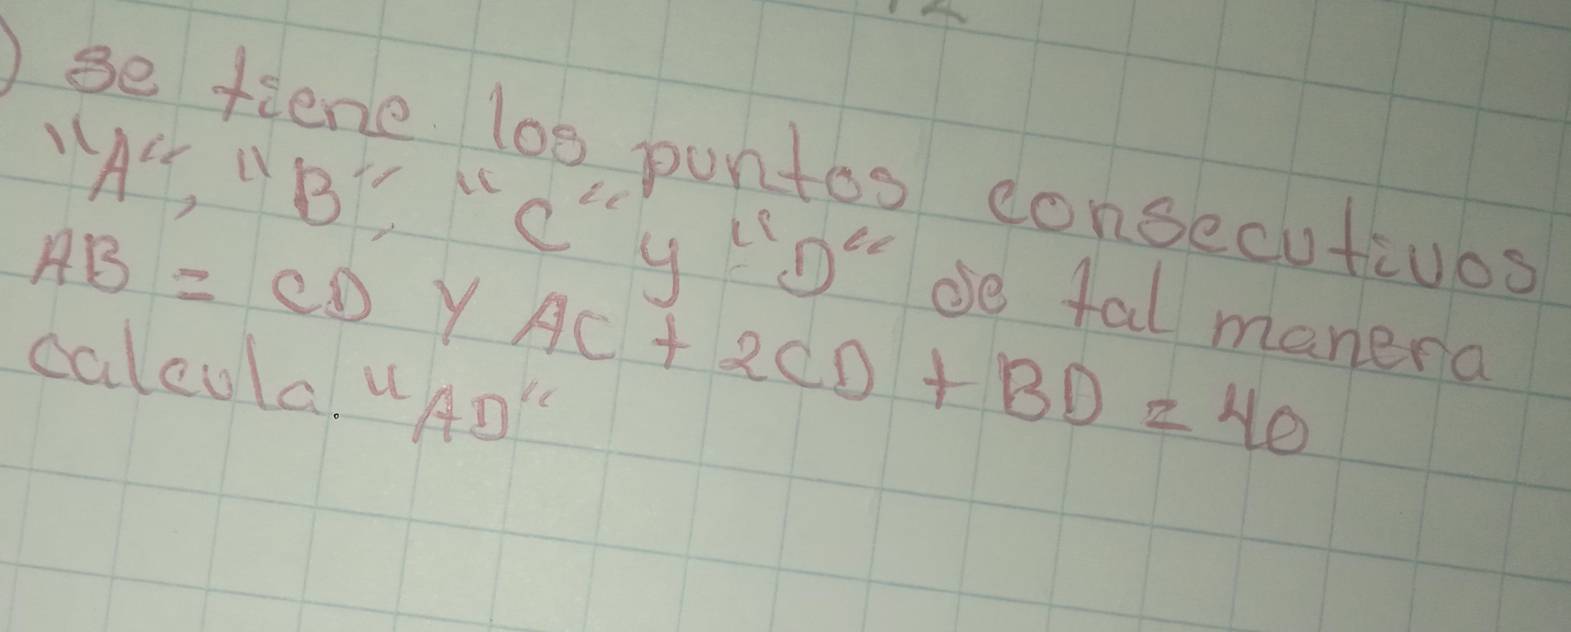 ) se tiene los puntos consecutivos
"A", "B", "C" y "D" de tal manera
AB = CD y AC + 2CD + BD = 40
calcula. "AD"